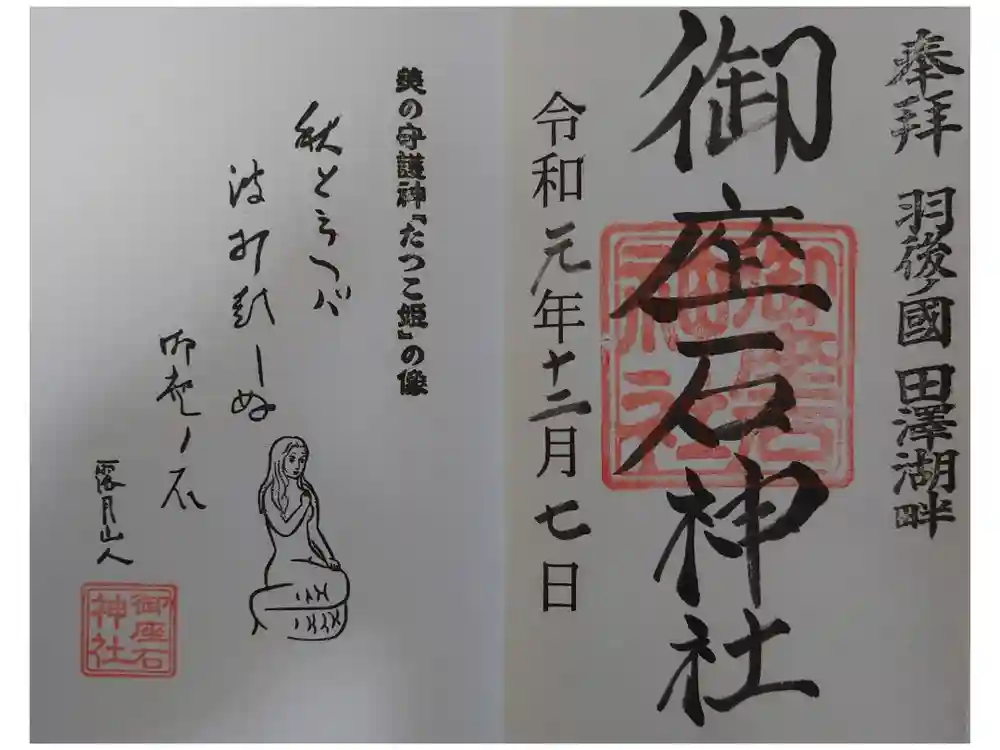 奉拝 羽後ノ國 田澤湖畔
御座石神社
御座石神社
令和元年十二月七日
美の守護神『たつこ姫』の像
秋と
波
ぬ
ノ石
霞月山人
御座石神社